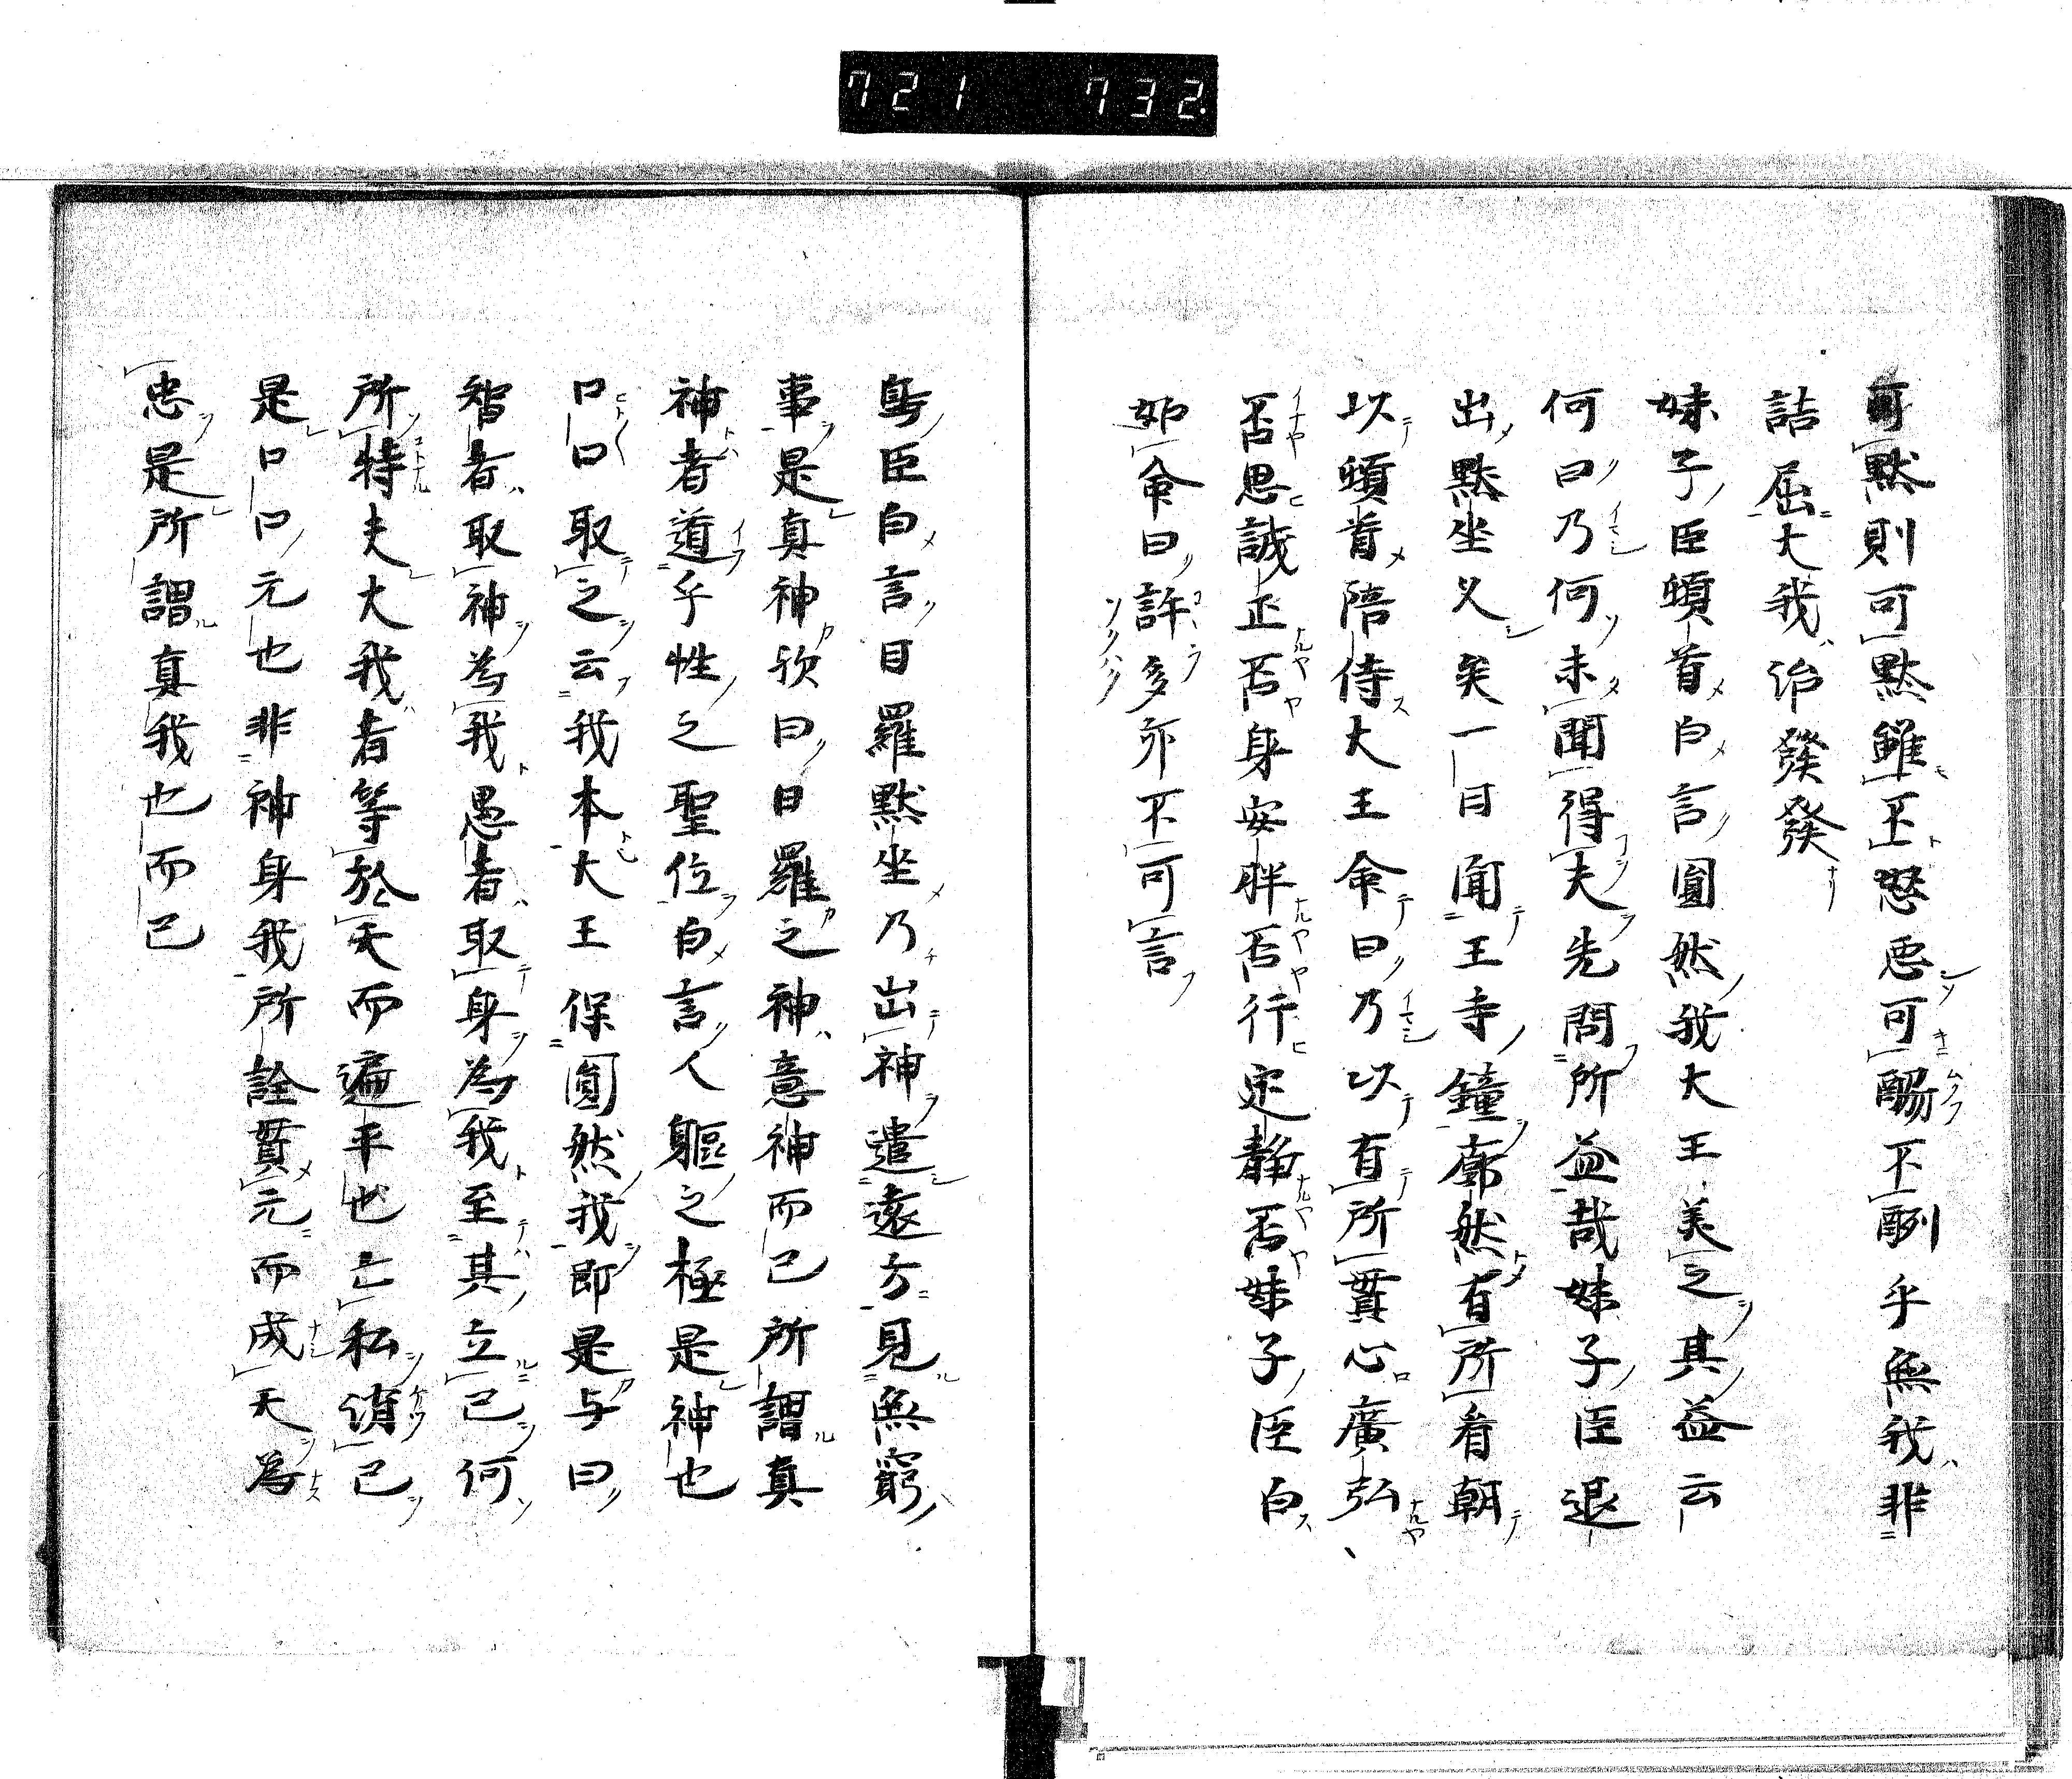 721 732.
可黙則可黙雖不愍悪可酬乎無我非
詰屈大我治發發
妹子臣頓首白言圓然我大王美之其益云
何曰乃何未聞得夫先問所益哉妹子臣退
出黙坐久矣一日聞王寺鐘廓然有所看朝
以頓首陪侍大王命曰乃以有所貫心廣弘
否思誠正否身安胖否行定靜否妹子臣白
如命曰許多亦不可言
鳥臣白言日羅黙坐乃出神遣遠方見無窮
事是真神欤曰日羅之神意神而已所謂真
神者道乎性之聖位白言人軀之極是神也
口口取之云我本大王保圓然我即是与曰
智者取神為我愚者取身為我至其立己何
所特夫大我者等於天而遍平也亡私消己
是口口元也非神身我所詮貫元而成天為
忠是所謂真我也而已